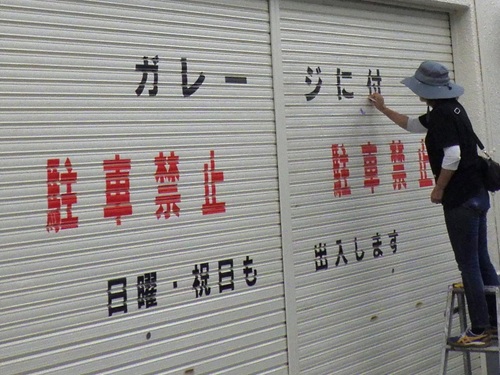 ガレージに付
駐車禁止 駐車禁止
日曜・祝日も出入します